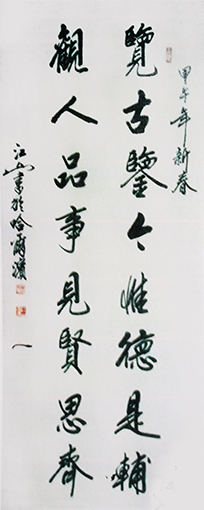 甲午年新春
覽古鑒今惟德是輔
觀人品事見賢思齊
江山書於哈爾濱